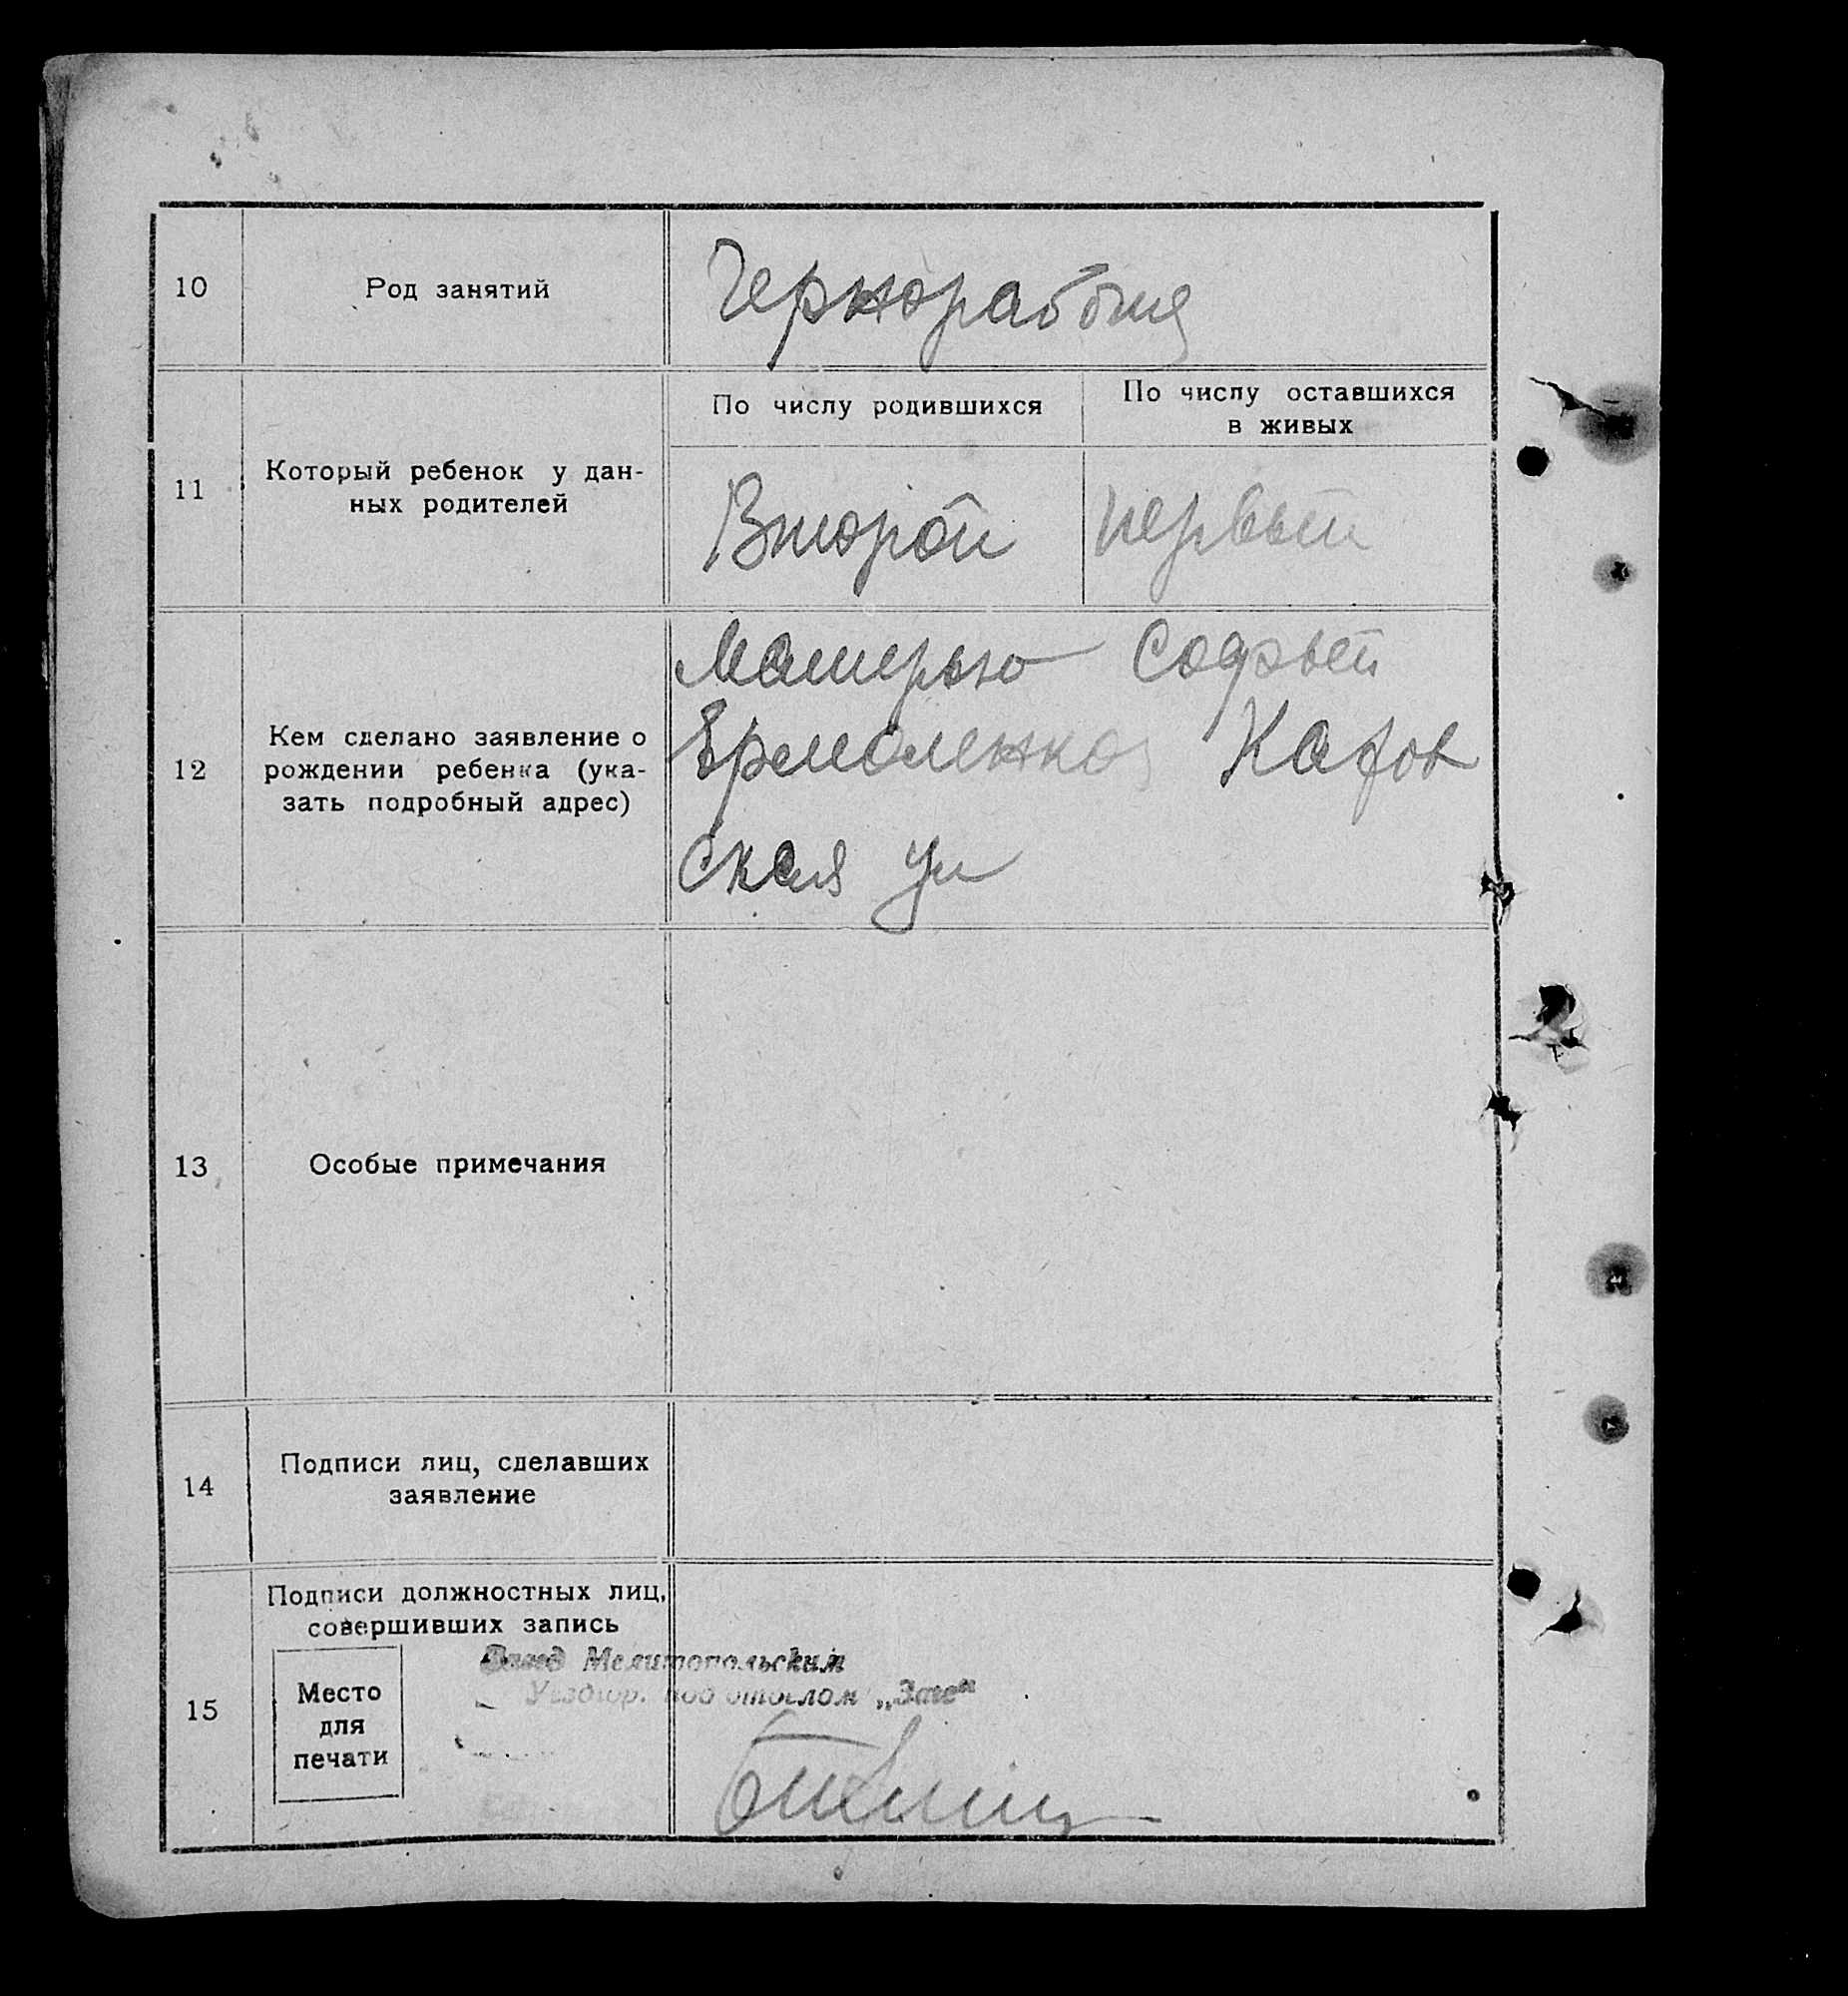 10
Род занятий
Чернорабочия
11
Который ребенок у дан-
ных родителей
По числу родившихся
По числу оставшихся
в живых
Второй
первый
12
Кем сделано заявление о
рождении ребенка (ука-
зать подробный адрес)
Матерью Софьей
Ермоленко
ская ул
13
Особые примечания
14
Подписи лиц, сделавших
заявление
15
Подписи должностных лиц,
совершивших запись
Место
для
печати
Мелитопольским
под отделом „Загс“